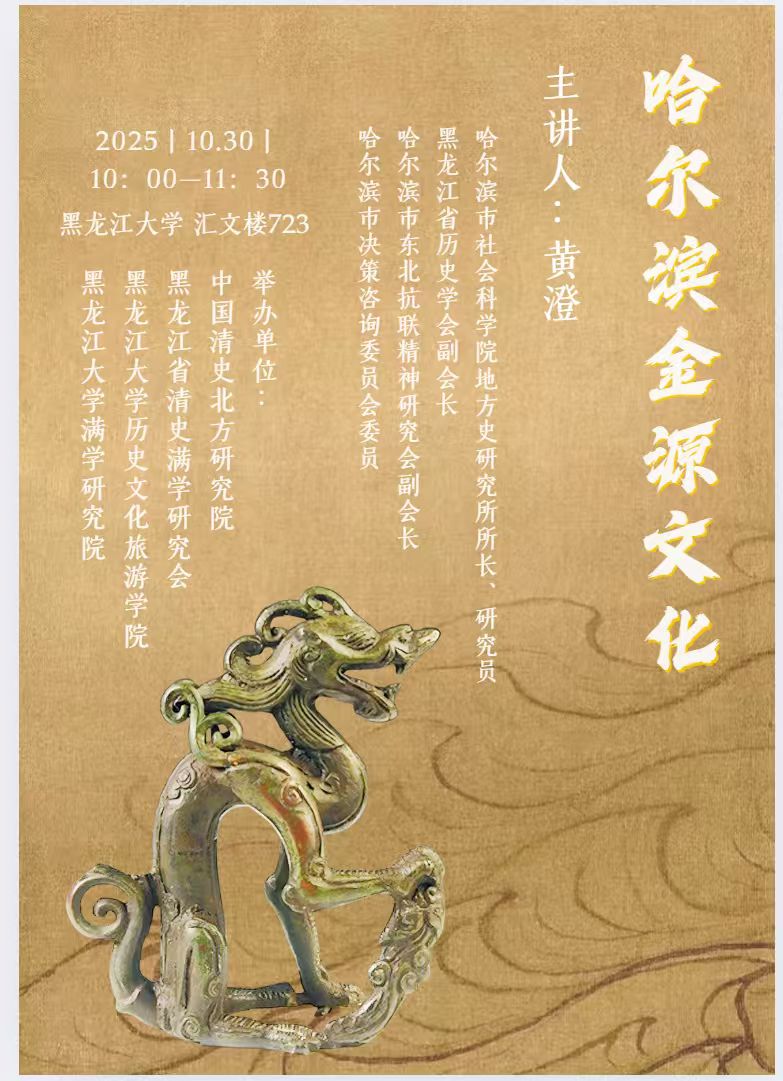 哈尔滨金源文化
主讲人：黄澄
哈尔滨市社会科学院地方史研究所所长、研究员
黑龙江省历史学会副会长
哈尔滨市东北抗联精神研究会副会长
哈尔滨市决策咨询委员会委员
2025 | 10.30 |
10：00—11：30
黑龙江大学 汇文楼723
举办单位：
中国清史北方研究院
黑龙江省清史满学研究会
黑龙江大学历史文化旅游学院
黑龙江大学满学研究院